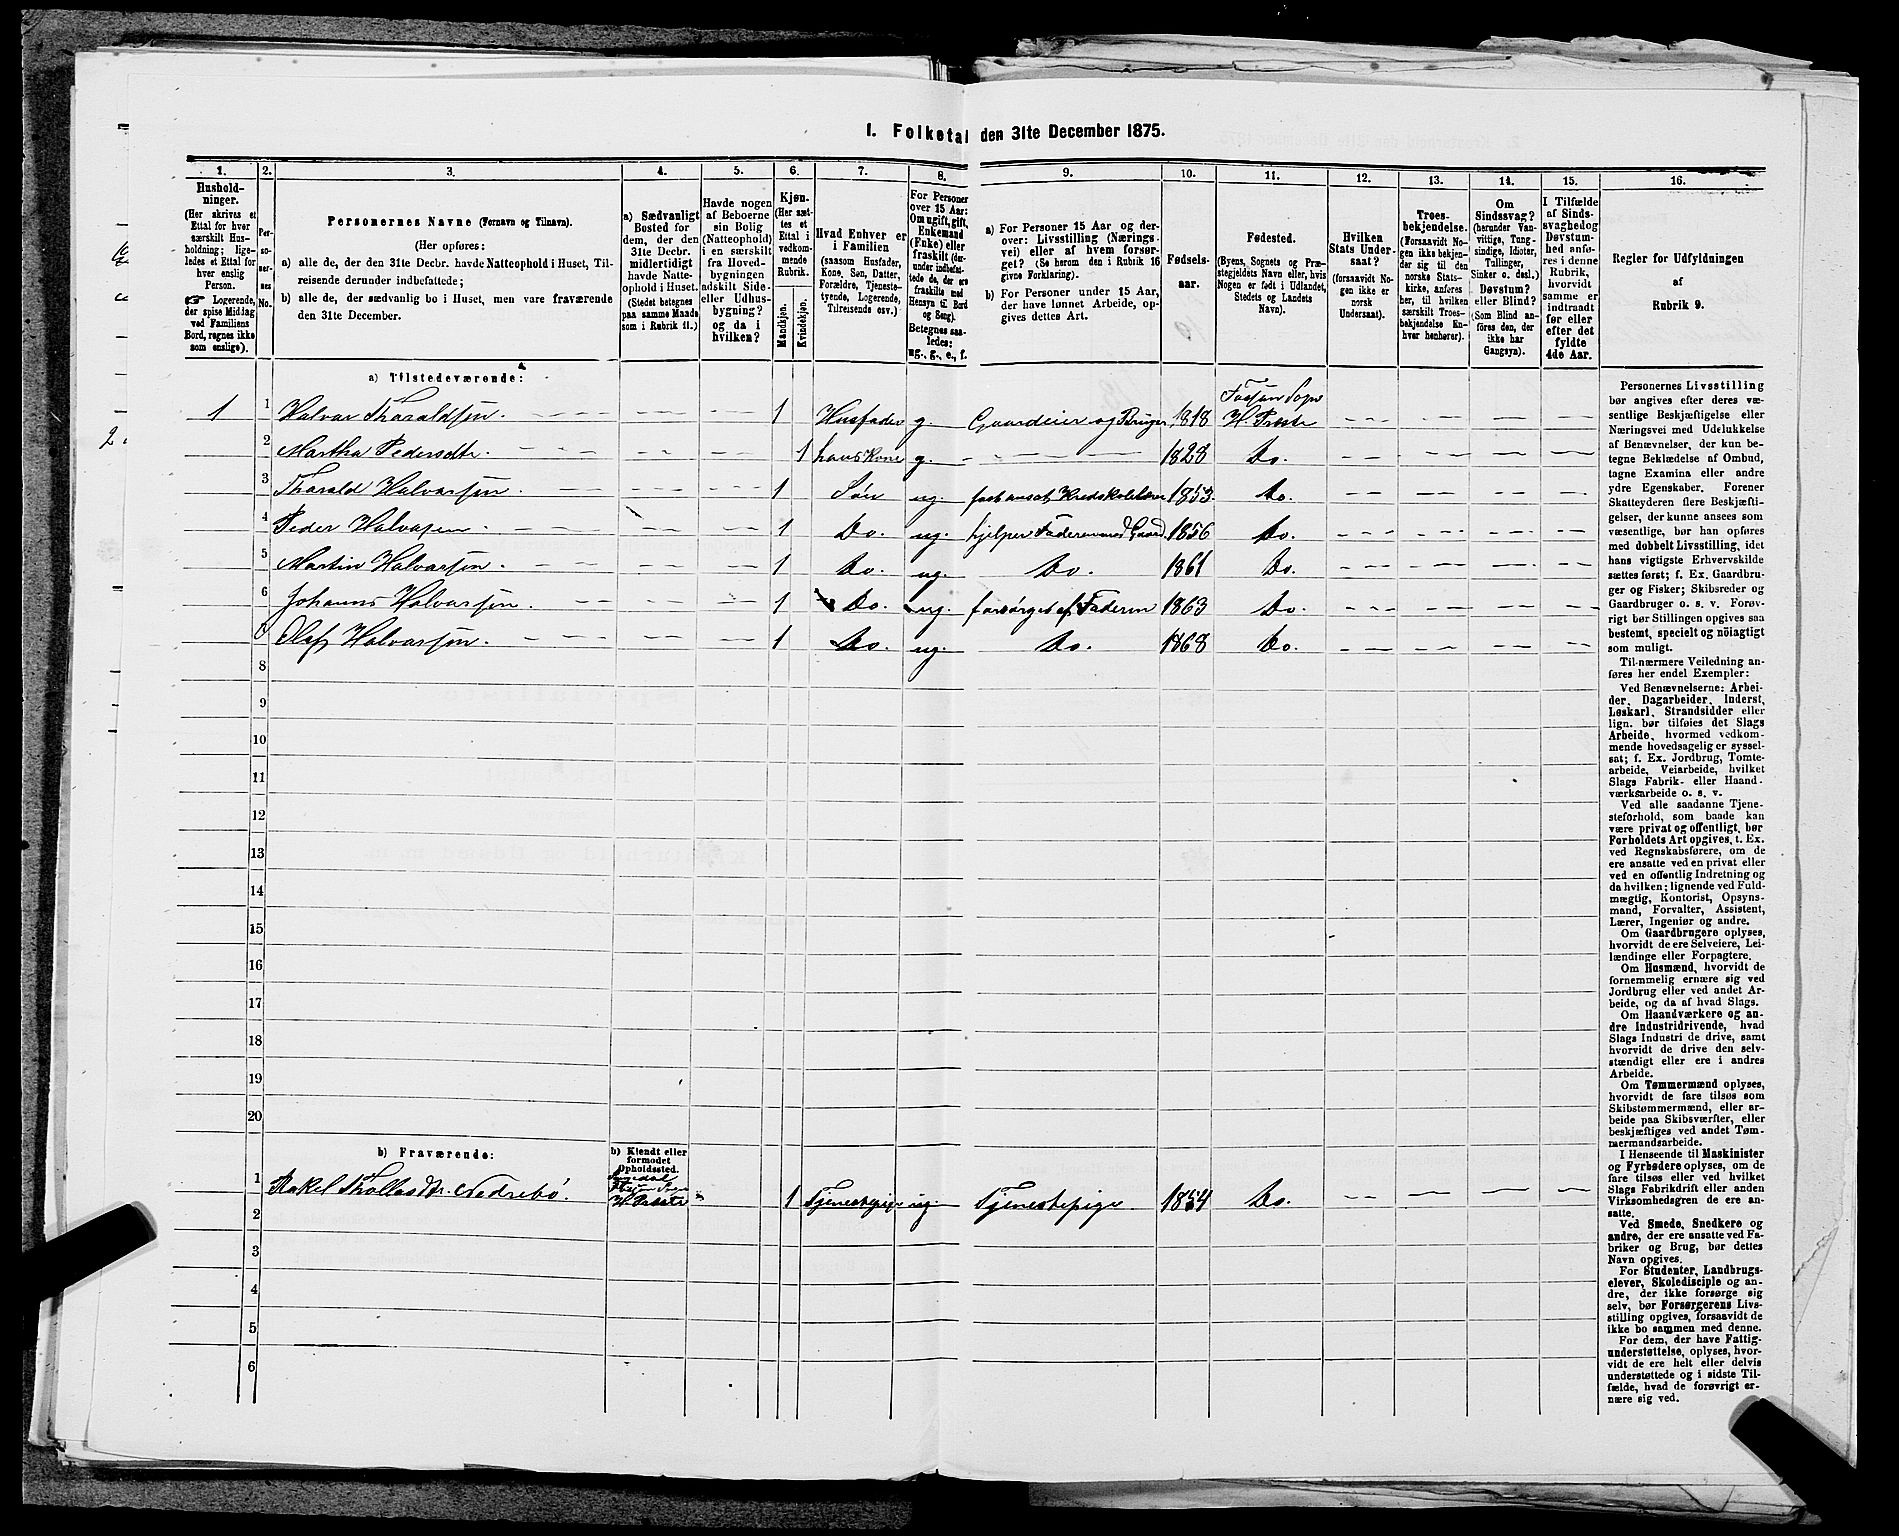 1. Folketal den 31te December 1875.
1. 2. 3. 4. 5. 6. 7. 8. 9. 10. 11. 12. 13. 14. 15. 16.
Hushold-
ninger.
(Her skrives et
Ettal for hver
særskilt Hus-
holdning; lige-
ledes et Ettal for
hver enslig
Person.
☞ Logerende,
der spise Middag
ved Familiens
Bord, regnes ikke
som enslige).
Per-
so-
ner-
nes
No.
Personernes Navne (Fornavn og Tilnavn).
(Her opføres:
a) alle de, der den 31te Decbr. havde Natteophold i Huset, Til-
reisende derunder indbefattede;
b) alle de, der sædvanlig bo i Huset, men vare fraværende
den 31te December.
a) Sædvanligt
Bosted for
dem, der den
31te Decbr.
midlertidigt
havde Natte-
ophold i Huset.
(Stedet betegnes
paa samme Maade
som i Rubrik 11.)
Havde nogen
af Beboerne
sin Bolig
(Natteophold)
i en særskilt
fra Hoved-
bygningen
adskilt Side-
eller Udhus-
bygning?
og da i
hvilken?
Kjøn.
(Her sæt-
tes et
Ettal i
vedkom-
mende
Rubrik.
Mandkjøn.
Kvindekjøn.
Hvad Enhver er
i Familien
(saasom Husfader,
Kone, Søn, Datter,
Forældre, Tjeneste-
tyende, Logerende,
Tilreisende osv.)
For Personer
over 15 Aar:
Om ugift, gift,
Enkemand
(Enke) eller
fraskilt (der-
under indbefat-
tede de, der ere
fraskilte med
Hensyn til Bord
og Seng).
Betegnes saa-
ledes:
ug., g., e., f.
a) For Personer 15 Aar og der-
over: Livsstilling (Nærings-
vei) eller af hvem forsør-
get? (Se herom den i Rubrik 16
givne Forklaring).
b) For Personer under 15 Aar,
der have lønnet Arbeide, op-
gives dettes Art.
Fødsels-
aar.
Fødested.
(Byens, Sognets og Præ-
stegjeldets Navn eller, hvis
Nogen er født i Udlandet,
Stedets og Landets
Navn).
Hvilken
Stats Under-
saat?
(forsaavidt No-
gen ikke er
norsk
Undersaat).
Troes-
bekjendelse.
(Forsaavidt No-
gen ikke bekjen-
der sig til den
norske Stats-
kirke, anføres
her, til hvilken
særskilt Troes-
bekjendelse En-
hver henhører).
Om
Sindssvag?
(herunder Van-
vittige, Tung-
sindige, Idioter,
Tullinger,
Sinker o. desl.).
Døvstum?
eller Blind?
(Som Blind an-
føres den, der
ikke har
Gangsyn).
I Tilfælde
af Sinds-
svaghed og
Døvstum-
hed anfø-
res i denne
Rubrik,
hvorvidt
samme er
indtraadt
før eller
efter det
fyldte
4de Aar.
Regler for Udfyldningen
af
Rubrik 9.
a) Tilstedeværende:
1 1 Halvor Tharaldsen. 1 Husfader g. Gaardeier og Bruger 1818 Sogn H. Præste
2 Martha Pedersdtr. 1 hans Kone g. 1828 Do.
3 Tharald Halvorsen. 1 Søn ug. fast ansat Kredsskolelærer 1853. Do.
4 Peder Halvorsen. 1 Do. ug. hjelper Faderen med Gaard. 1856 Do.
5 Martin Halvorsen. 1 Do. ug. Do. 1861 Do.
6 Johannes Halvorsen. 1 Do. ug. forsørget af Faderen 1863 Do.
Olaf Halvorsen. 1 Do. ug. Do. 1868 Do.
8
9
10
11
12
13
14
15
16
17
18
19
20
b) Fraværende:
b) Kjendt eller
formodet
Opholdssted.
1 Rakel Thollasdtr. Nedrebø. H. Præste 1 Tjenestepige ug. Tjenestepige. 1854 Do.
2
3
4
5
6
Personernes Livsstilling
bør angives efter deres væ-
sentlige Beskjæftigelse eller
Næringsvei med Udelukkelse
af Benævnelser, der kun be-
tegne Beklædelse af Ombud,
tagne Examina eller andre
ydre Egenskaber. Forener
Skatteyderen flere Beskjæfti-
gelser, der kunne ansees som
væsentlige, bør han opføres
med dobbelt Livsstilling, idet
hans vigtigste Erhvervskilde
sættes først; f. Ex. Gaardbru-
ger og Fisker; Skibsreder og
Gaardbruger o. s. v. Forøv-
rigt bør Stillingen opgives saa
bestemt, specielt og nöiagtigt
som muligt.
Til nærmere Veiledning an-
føres her endel Exempler:
Ved Benævnelserne: Arbei-
der, Dagarbeider, Inderst,
Løskarl, Strandsidder eller
lign. bør tilføies det Slags
Arbeide, hvormed vedkom-
mende hovedsagelig er syssel-
sat; f. Ex. Jordbrug, Tomte-
arbeide, Veiarbeide, hvilket
Slags Fabrik- eller Haand-
værksarbeide o. s. v.
Ved alle saadanne Tjene-
steforhold, som baade kan
være privat og offentligt, bør
Forholdets Art opgives, t. Ex.
ved Regnskabsførere, om de
ere ansatte ved en privat eller
ved en offentlig Indretning og
da hvilken; lignende ved Fuld-
mægtig, Kontorist, Opsyns-
mand, Forvalter, Assistent,
Lærer, Ingeniør og andre.
Om Gaardbrugere oplyses,
hvorvidt de ere Selveiere, Lei-
lændinge eller Forpagtere.
Om Husmænd, hvorvidt de
fornemmelig ernære sig ved
Jordbrug eller ved andet Ar-
beide, og da af hvad Slags.
Om Haandværkere og an-
dre Industridrivende, hvad
Slags Industri de drive, samt
hvorvidt de drive den selv-
stændigt eller ere i andres
Arbeide.
Om Tømmermænd oplyses,
hvorvidt de fare tilsøs som
Skibstømmermænd, eller ar-
beide paa Skibsværfter, eller
beskjæftiges ved andet Tøm-
mermandsarbeide.
I Henseende til Maskinister
og Fyrbødere oplyses, om de
fare tilsøs eller ved hvilket
Slags Fabrikdrift eller anden
Virksomhedsgren de ere an-
satte.
Ved Smede, Snedkere og
andre, der ere ansatte ved Fa-
briker og Brug, bør dettes
Navn opgives.
For Studenter, Landbrugs-
elever, Skoledisciple og an-
dre, der ikke forsørge sig
selv, bør Forsørgerens Livs-
stilling opgives, forsaavidt de
ikke bo sammen med denne.
For dem, der have Fattig-
understøttelse, oplyses, hvor-
vidt de ere helt eller delvis
understøttede og i sidste Til-
fælde, hvad de forøvrigt er-
nære sig ved.